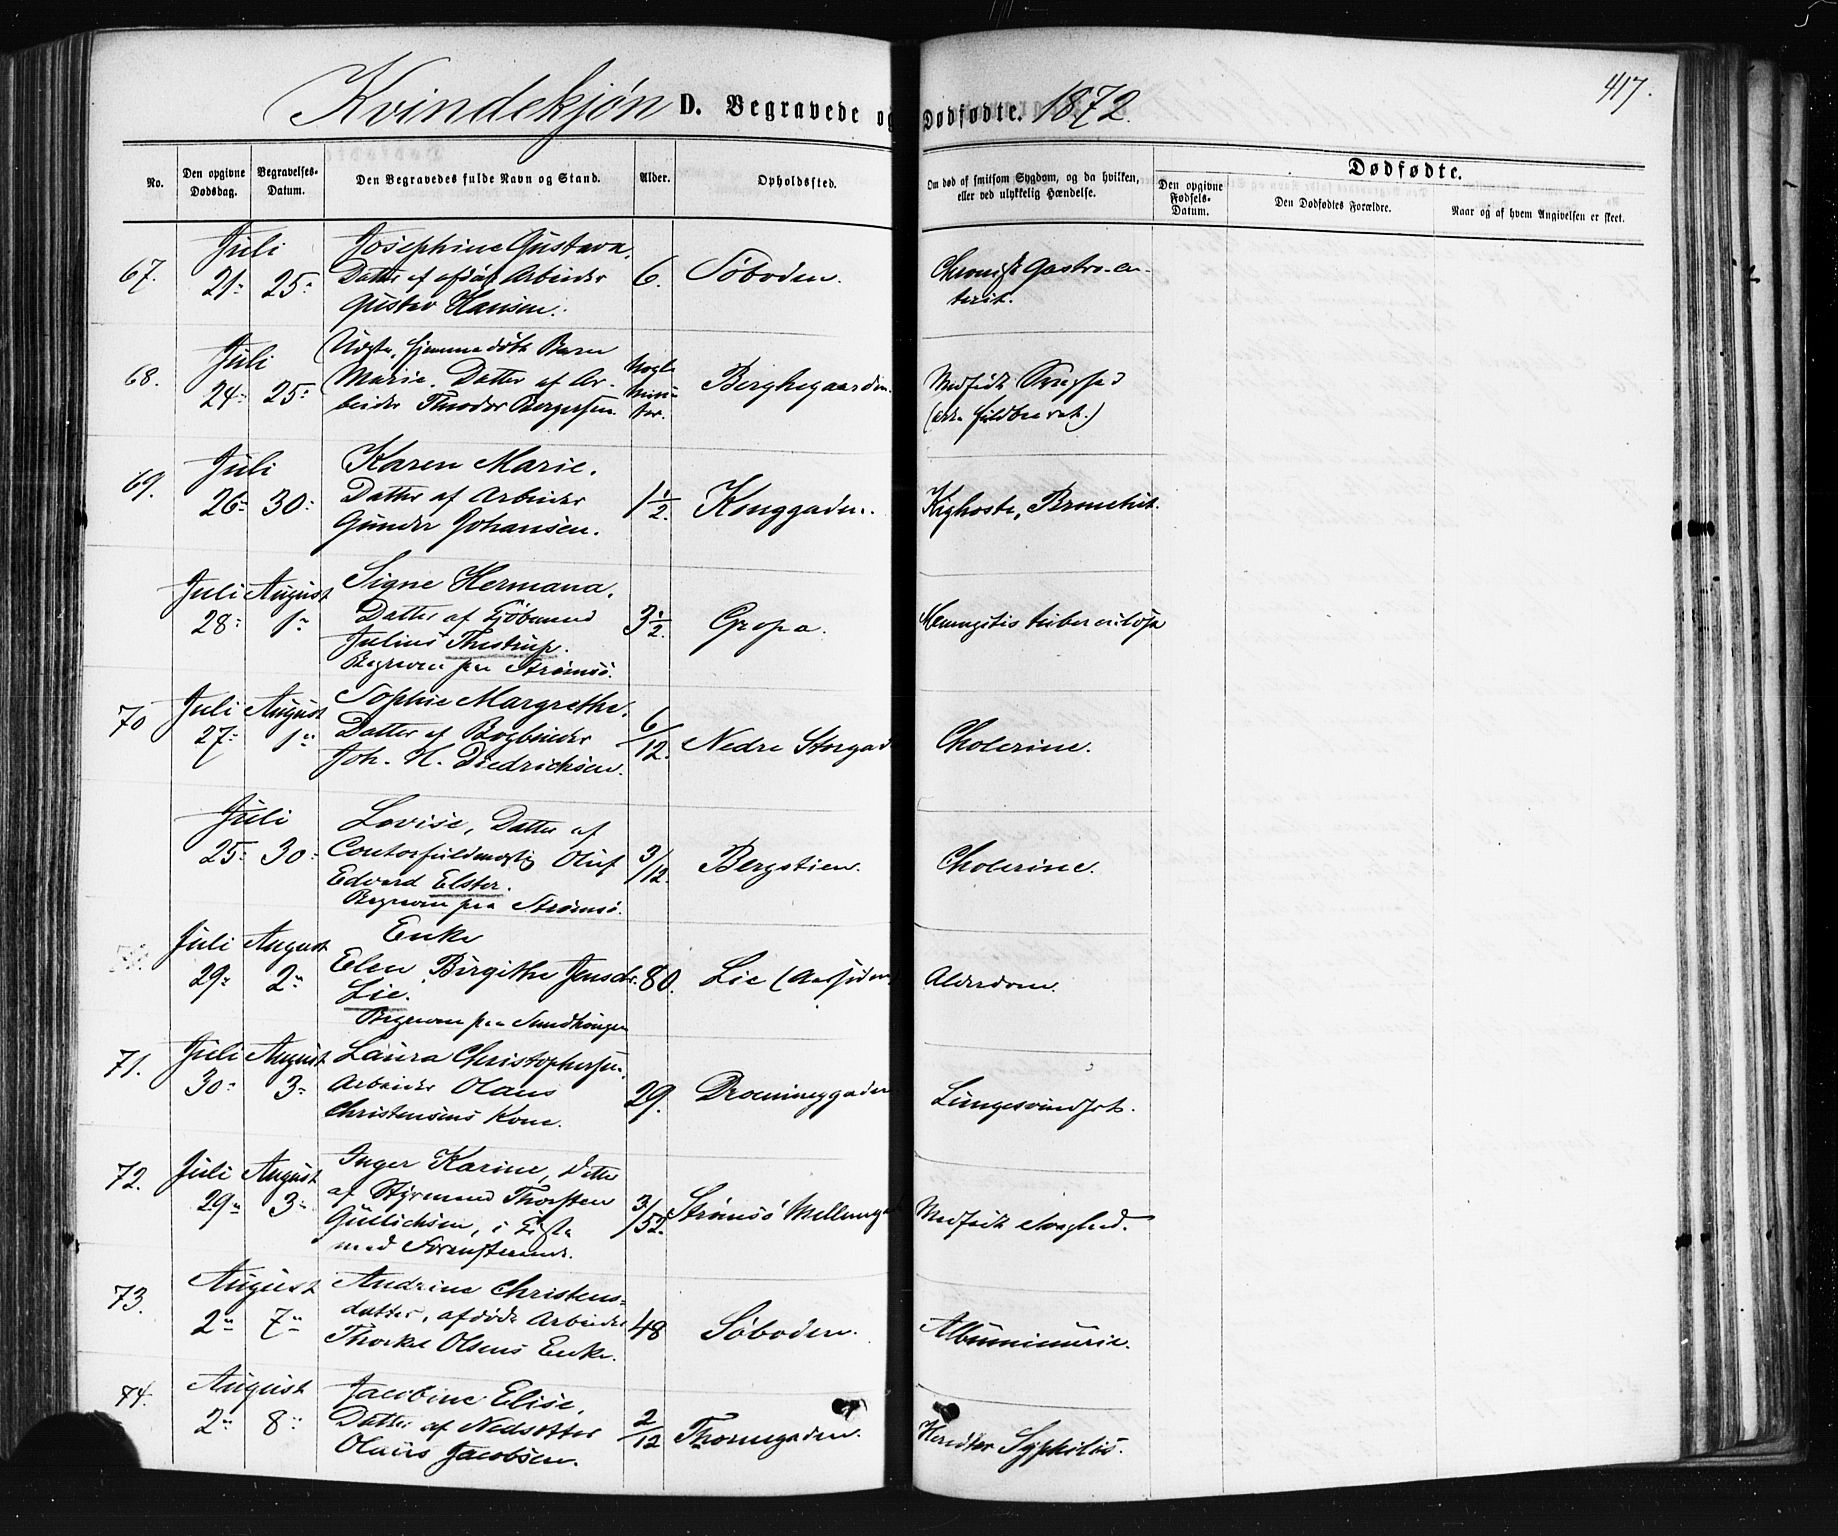 417.
Kvindekjøn D. Begravede og Dødfødte. 1872.
No.
Den opgivne Dødsdag.
Begravelses-Datum.
Den Begravedes fulde Navn og Stand.
Alder.
Opholdssted.
Om død af smitsom Sygdom, og da hvilken, eller ved ulykkelig Hændelse.
Dødfødte.
Den opgivne Fødsels-Datum.
Den Dødfødtes Forældre.
Naar og af hvem Angivelsen er skeet.
Juli Josephine Gustava.
67. 21 25 Datter af afdøde Arbeider 6. Søboden. Chronisk Gastro-en-
Gustav Hansen. terit.
Juli hjemmedøbt Barn Nogle
68. 24 25 Marie. Datter af Ar- Minu- Berghegaarden. Medfødt Svaghed
beider Theodor Bergersen. ter.
Juli Karen Marie.
69. 26 30 Datter af Arbeider 1½ Konggaden. Kighoste, Bronchit.
Gunder Johansen.
Juli August Signe Hermana.
28 1 Datter af Kjøbmand 3½ Gropa. Meningitis tuberculosa
Julius Thestrup.
Begraven paa Strømsø.
70 Juli August Sophie Margrethe. 6/12
27 1 Datter af Bogbinder Nedre Storgad Cholerine.
Joh. H. Diedrichsen.
Juli Lovise, Datter af
25 30 Contorfuldmægtig Oluf 3/12 Bergstien. Cholerine.
Edvard Elster.
Begraven paa Strømsø.
Juli August Enke
29 2 Elen Birgithe Jensdr. 80. Lie Alderdom.
Lie.
Begraven paa
71. Juli August Laura Christophersen.
30 3 Arbeider Olaus 29. Dronninggaden Lungesvindsot.
Christensens Kone.
72. Juli August Inger Karine, Datter
29 3 af Styrmand Thorsten 3/52 Strømsø Mellemga Medfødt Svaghed.
Gulichsen, i Kiste
med
73. August Andrine Christens-
2 7 datter, afdøde Arbeider 48 Søboden. Albuminurie.
Olsens Enke.
74. August Jacobine Elise,
2 8 Datter af Nedsætter 2/12 Thornegaden. Syphilis.
Olaus Jacobsen.